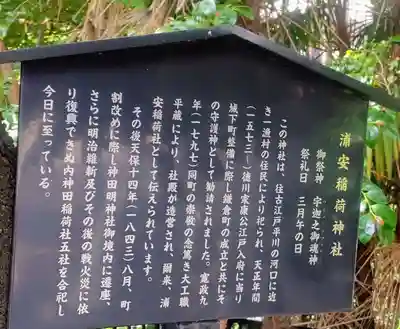 浦安稲荷神社
御祭神　宇迦之御魂神
祭礼日　三月午の日
この神社は、往古江戸平川の河口に近
き一漁村の住民により祀られ、天正年間
（一五七三〜）徳川家康公江戸入府に当り
城下町整備に際し鎌倉町の成立と共にそ
の守護神として勧請されました。寛政九
年（一七九七）同町の崇敬の念篤き大工職
平蔵により、社殿が造営され、爾来、浦
安稲荷社として伝えられています。
その後天保十四年（一八四三）八月、町
割改めに際し神田明神社御境内に遷座、
さらに明治維新及びその後の戦火災に依
り復興できぬ内神田稲荷社五社を合祀し
今日に至っている。